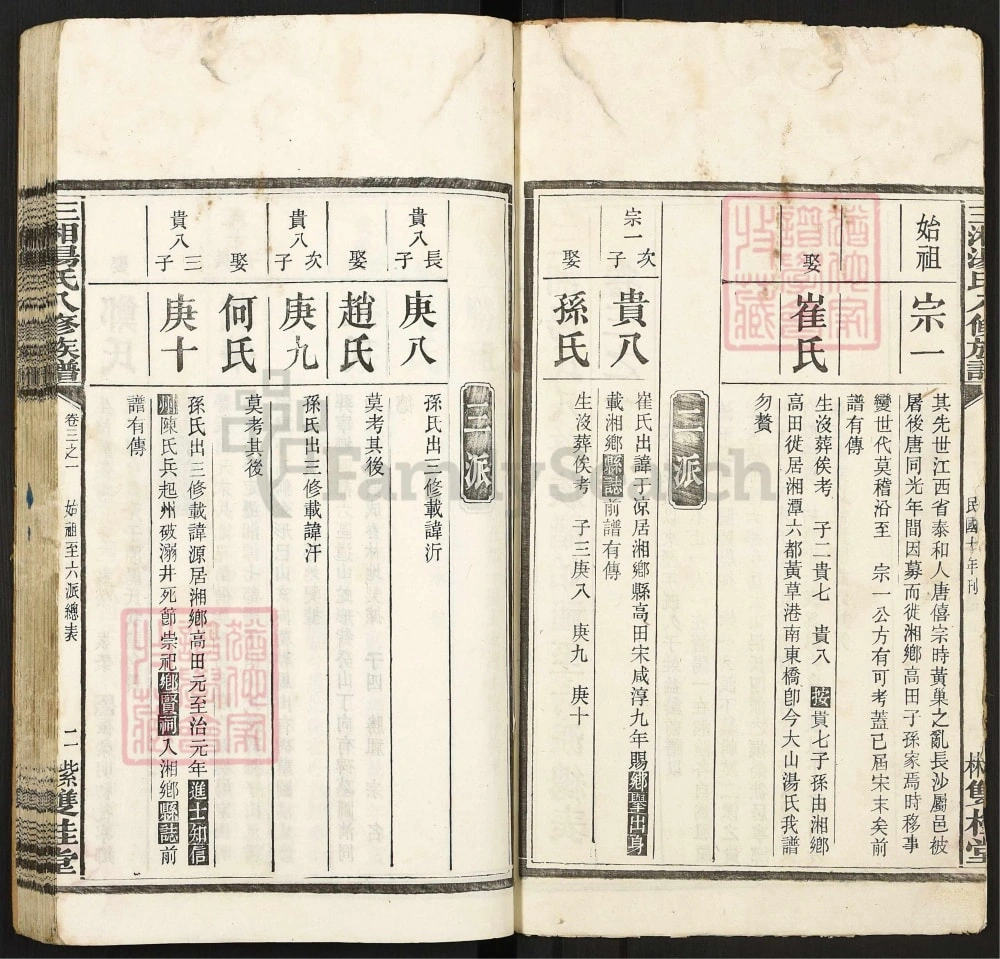 始祖
宗一
其先世江西省泰和人唐僖宗時黃巢之亂長沙屬邑被
屠後唐同光年間因募而徙湘鄉高田子孫家焉時移事
變世代莫稽沿至 宗一公方有可考蓋已屆宋末矣前
譜有傳
娶
崔氏
生沒葬俟考 子二貴七 貴八 按貴七子孫由湘鄉
高田徙居湘潭六都黃草港南東橋卽今大山湯氏我譜
勿贅
二派
宗一次子
貴八
崔氏出諱于凉居湘鄉縣高田宋咸淳九年賜鄉舉出身
載湘鄉縣誌前譜有傳
娶
孫氏
生沒葬俟考 子三庚八 庚九 庚十
三派
貴八長子
庚八
孫氏出三修載諱沂
娶
趙氏
莫考其後
貴八次子
庚九
孫氏出三修載諱汗
娶
何氏
莫考其後
貴八三子
庚十
孫氏出三修載諱源居湘鄉高田元至治元年進士知信
州陳氏兵起州破溺井死節崇祀鄉賢祠入湘鄉縣誌前
譜有傳
三湘湯氏八修族譜
卷三之一
始祖至六派總表
二
雙桂堂
三湘湯氏八修族譜
民國十年刊
雙桂堂
FamilySearch